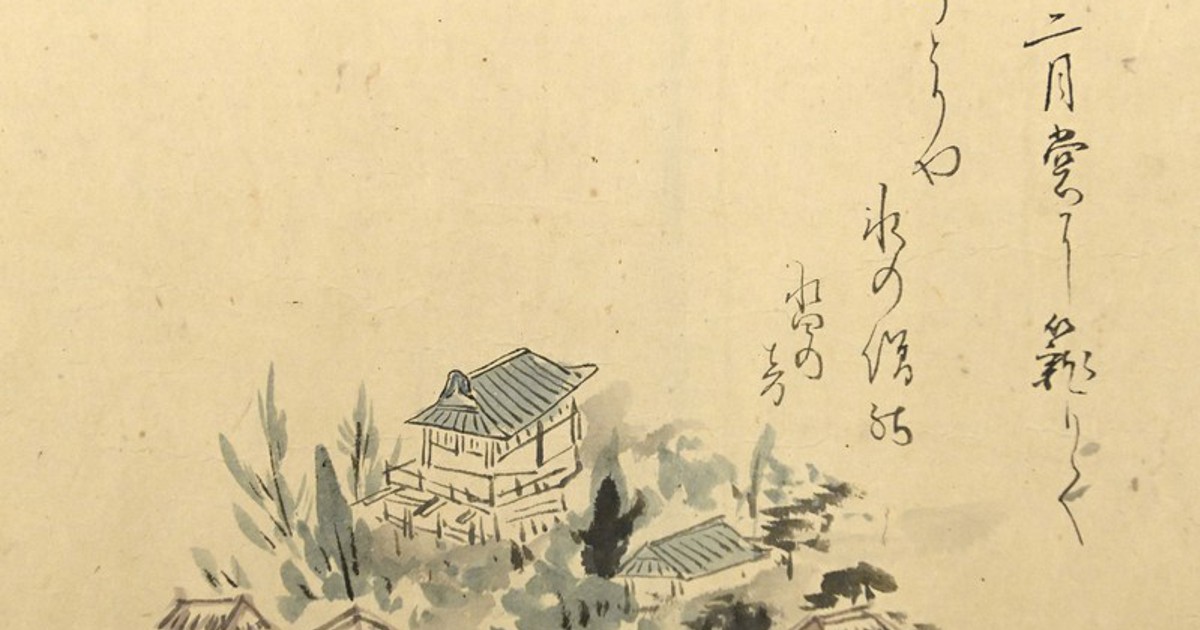 二月堂に籠りて
とりや
氷の僧の
沓の
音